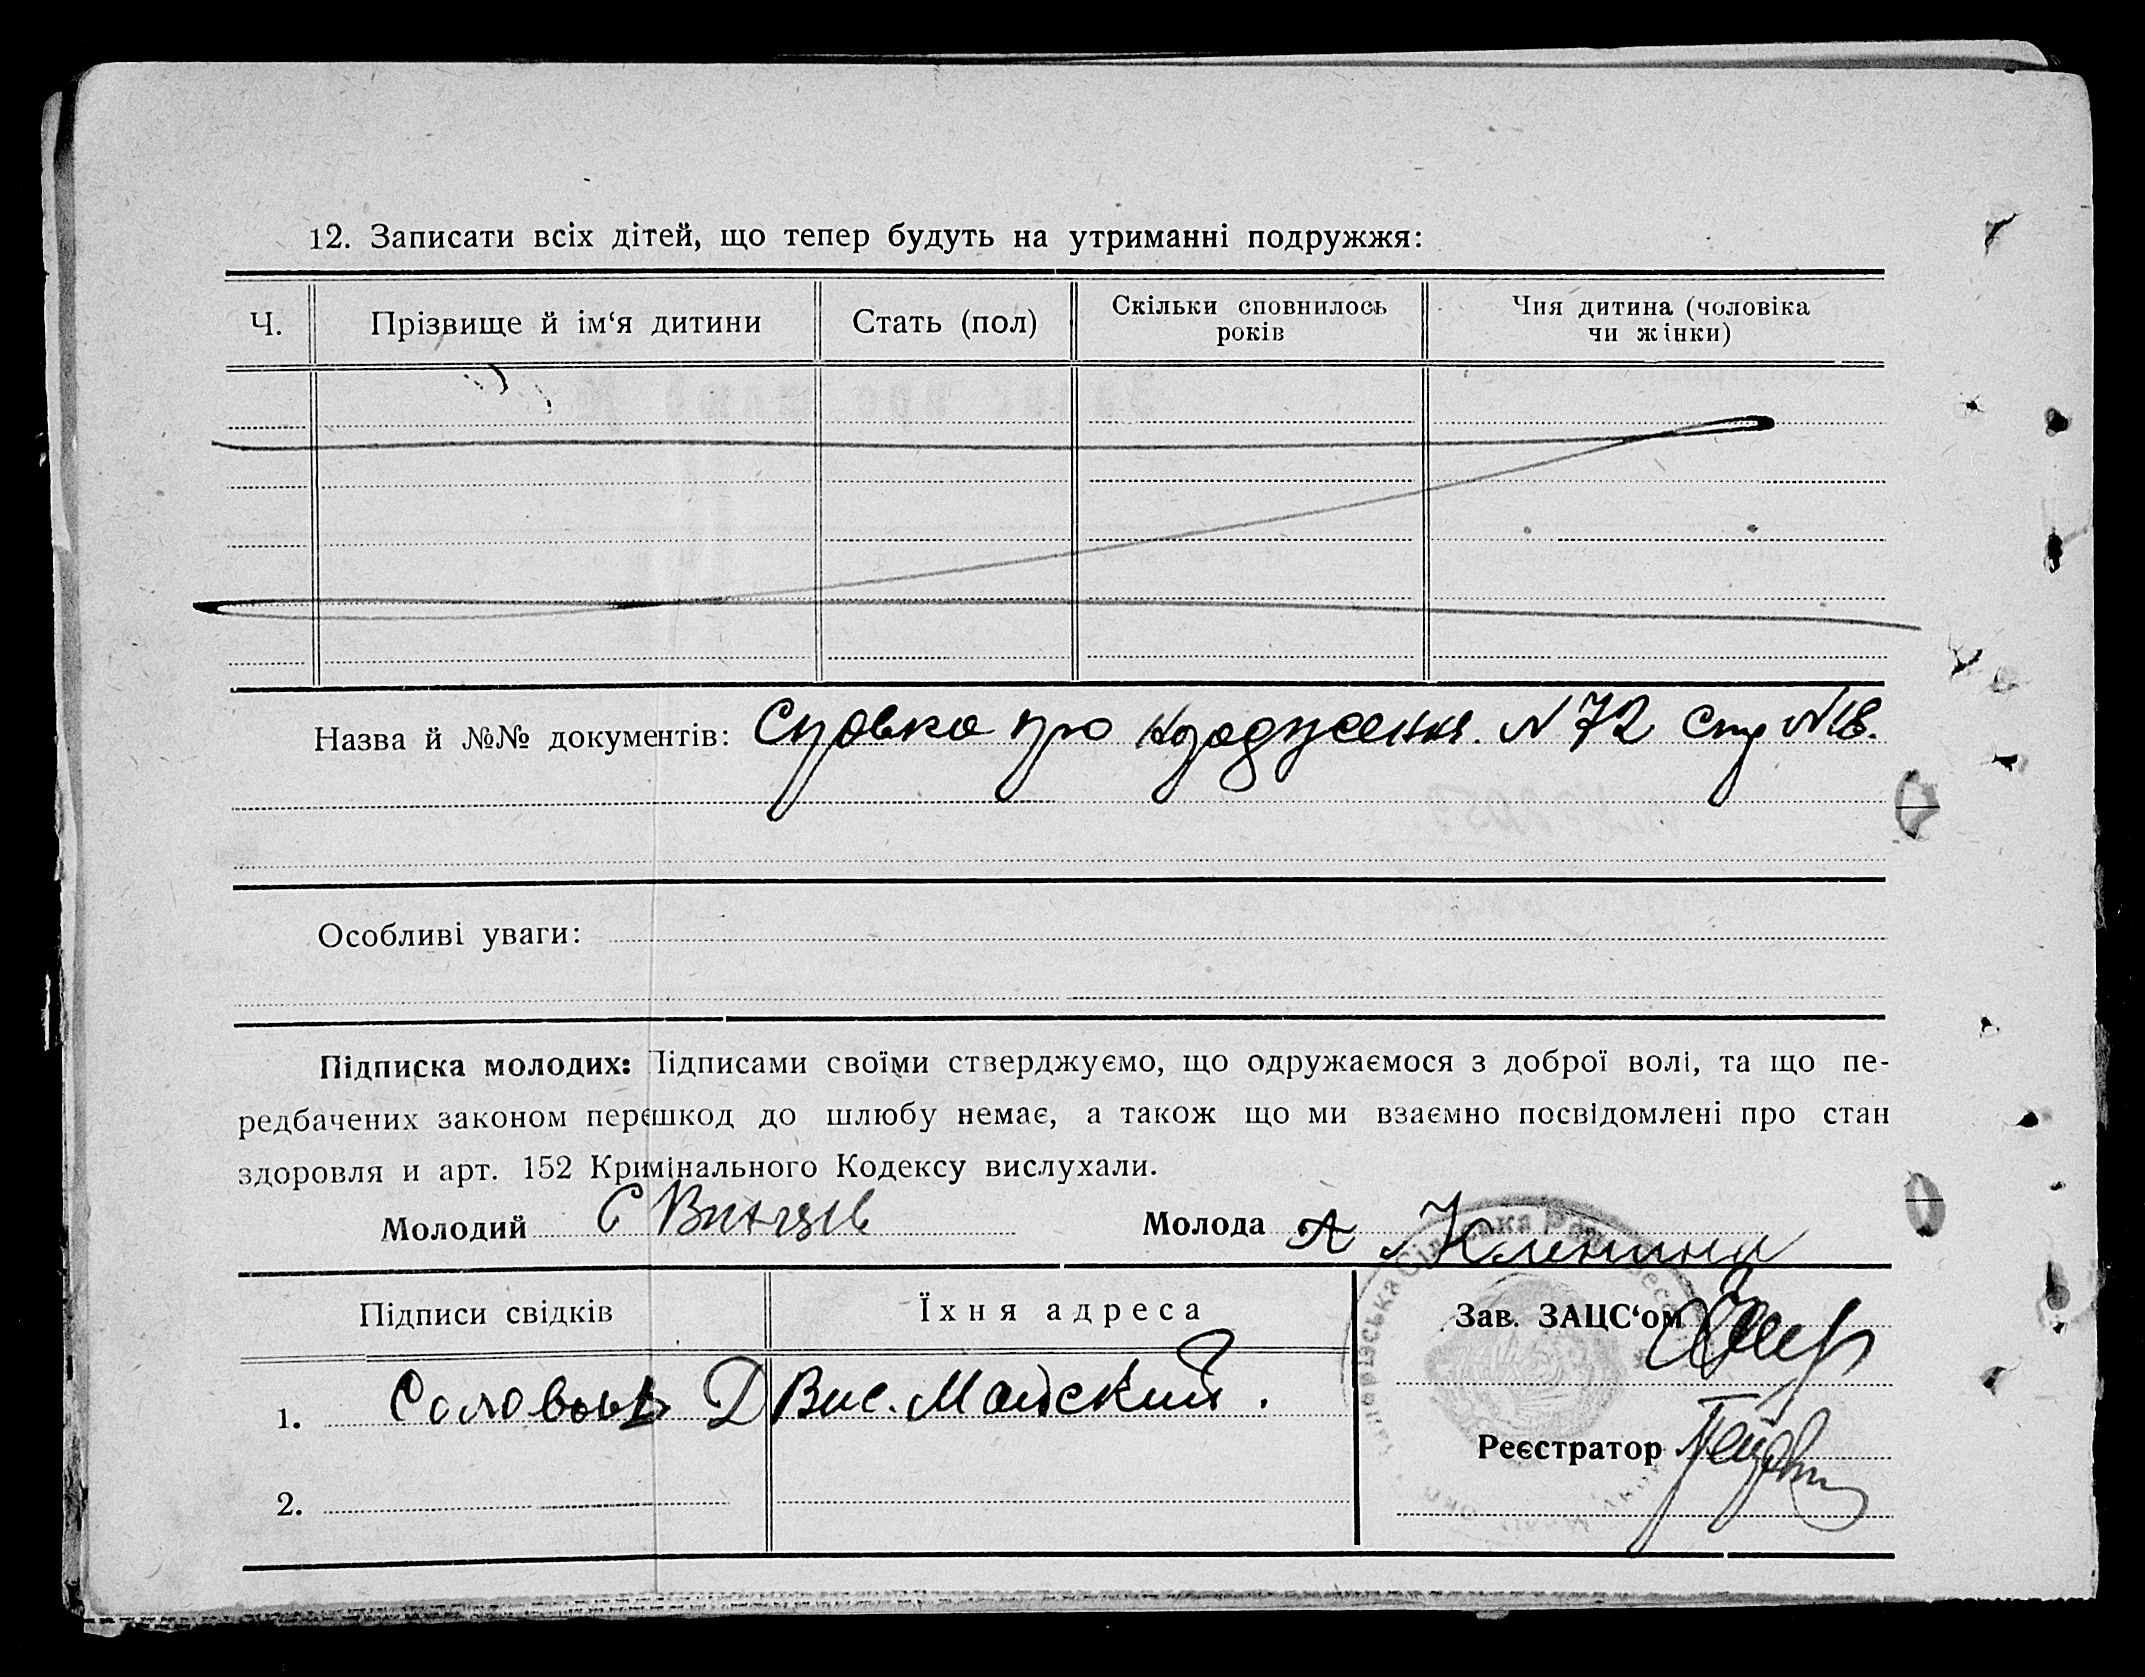 12. Записати всіх дітей, що тепер будуть на утриманні подружжя:
Ч. Прізвище й ім‘я дитини Стать (пол) Скільки сповнилось років Чия дитина (чоловіка чи жінки)
Назва й №№ документів: про N 72 Стр N 18.
Особливі уваги:
Підписка молодих: Підписами своїми стверджуємо, що одружаємося з доброї волі, та що пе-
редбачених законом перешкод до шлюбу немає, а також що ми взаємно посвідомлені про стан
здоровля и арт. 152 Кримінального Кодексу вислухали.
Молодий С Молода А Кленина
Підписи свідків Їхня адреса Зав. ЗАЦС‘ом
1. Соловьов Д Вис. Майский.
Реєстратор
2.